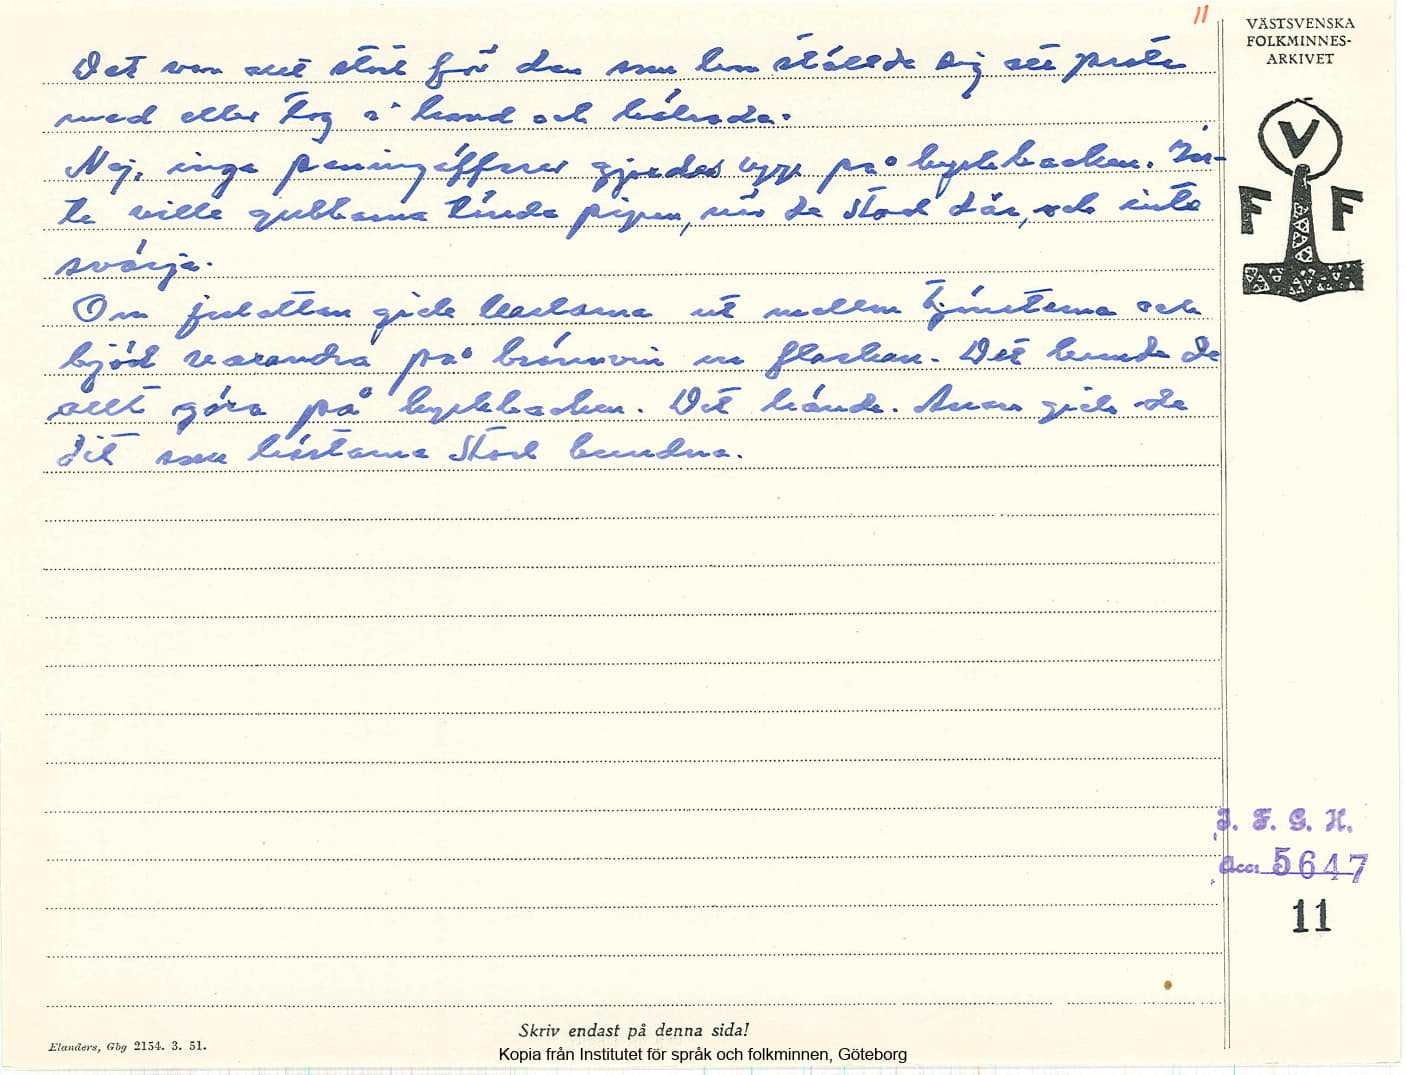 11
VÄSTSVENSKA
FOLKMINNES-
ARKIVET
V
F F
Det var allt stort för den som hon ställde sig att prata
med eller tog i hand och hälsade.
Nej, inga peningoffrer gjordes uppe på kyrkbacken. In-
te ville gubbarna tända pipan, när de stod där, och inte
svärja.
Om julottan gick karlarna ut mellan tjänsterna och
bjöd varandra på brännvin ur flaskan. Det kunde de
allt göra på kyrkbacken. Det hände. Annars gick de
dit som hästarna stod bundna.
I. F. G. H.
Acc: 5647
11
Skriv endast på denna sida!
Elanders, Gbg 2154. 3. 51.
Kopia från Institutet för språk och folkminnen, Göteborg